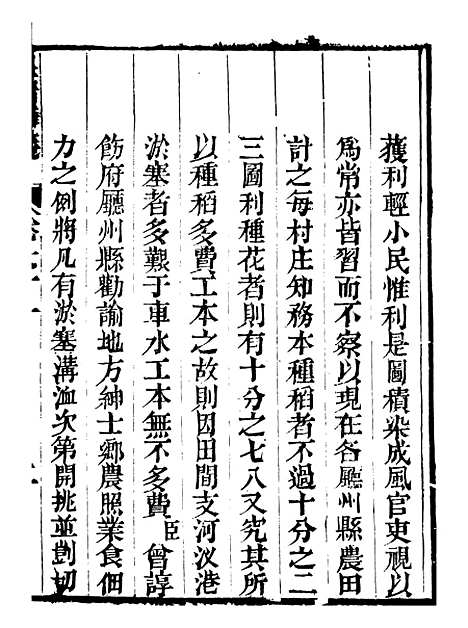 獲利輕小民惟利是圖積染成風官吏視以
爲常亦皆習而不察以現在各廳州縣農田
計之每村庄知務本種稻者不過十分之二
三圖利種花者則有十分之七八又究其所
以種稻多費工本之故則因田間支河汊港
淤塞者多艱于車水工本無不多費臣曾諄
飭府廳州縣勸諭地方紳士鄉農照業食佃
力之例將凡有淤塞溝洫次第開挑並剴切